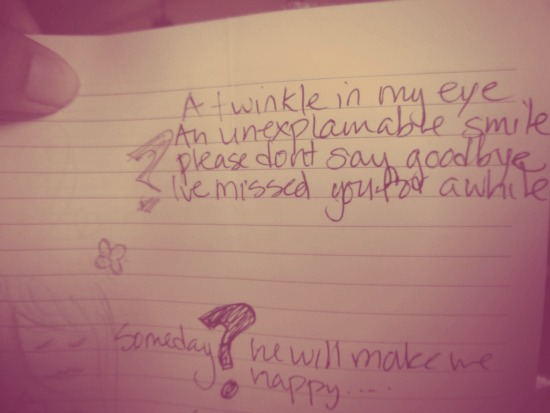 A twinkle in my eye
An unexplainable smile
? please dont say goodbye
I've missed you for awhile
someday ? he will make me
happy....